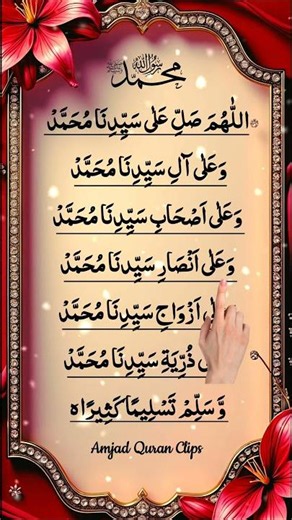 محمد رسول الله
اَللّٰهُمَّ صَلِّ عَلٰى سَيِّدِنَا مُحَمَّدْ
وَعَلٰى آلِ سَيِّدِنَا مُحَمَّدْ
وَعَلٰى اَصْحَابِ سَيِّدِنَا مُحَمَّدْ
وَعَلٰى اَنْصَارِ سَيِّدِنَا مُحَمَّدْ
اَزْوَاجِ سَيِّدِنَا مُحَمَّدْ
ذُرِّيَةِ سَيِّدِنَا مُحَمَّدْ
وَّ سَلِّمْ تَسْلِيمًا كَثِيرًا ه
Amjad Quran Clips